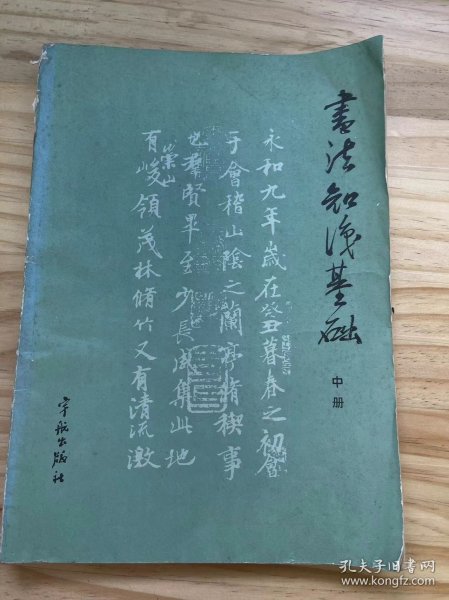 書法知识基础
中册
永和九年歲在癸丑暮春之初會
于會稽山陰之蘭亭脩稧事
也羣賢畢至少長咸集此地
有崇山峻領茂林脩竹又有清流激
宇航出版社
孔夫子旧书网
www.kongfz.com